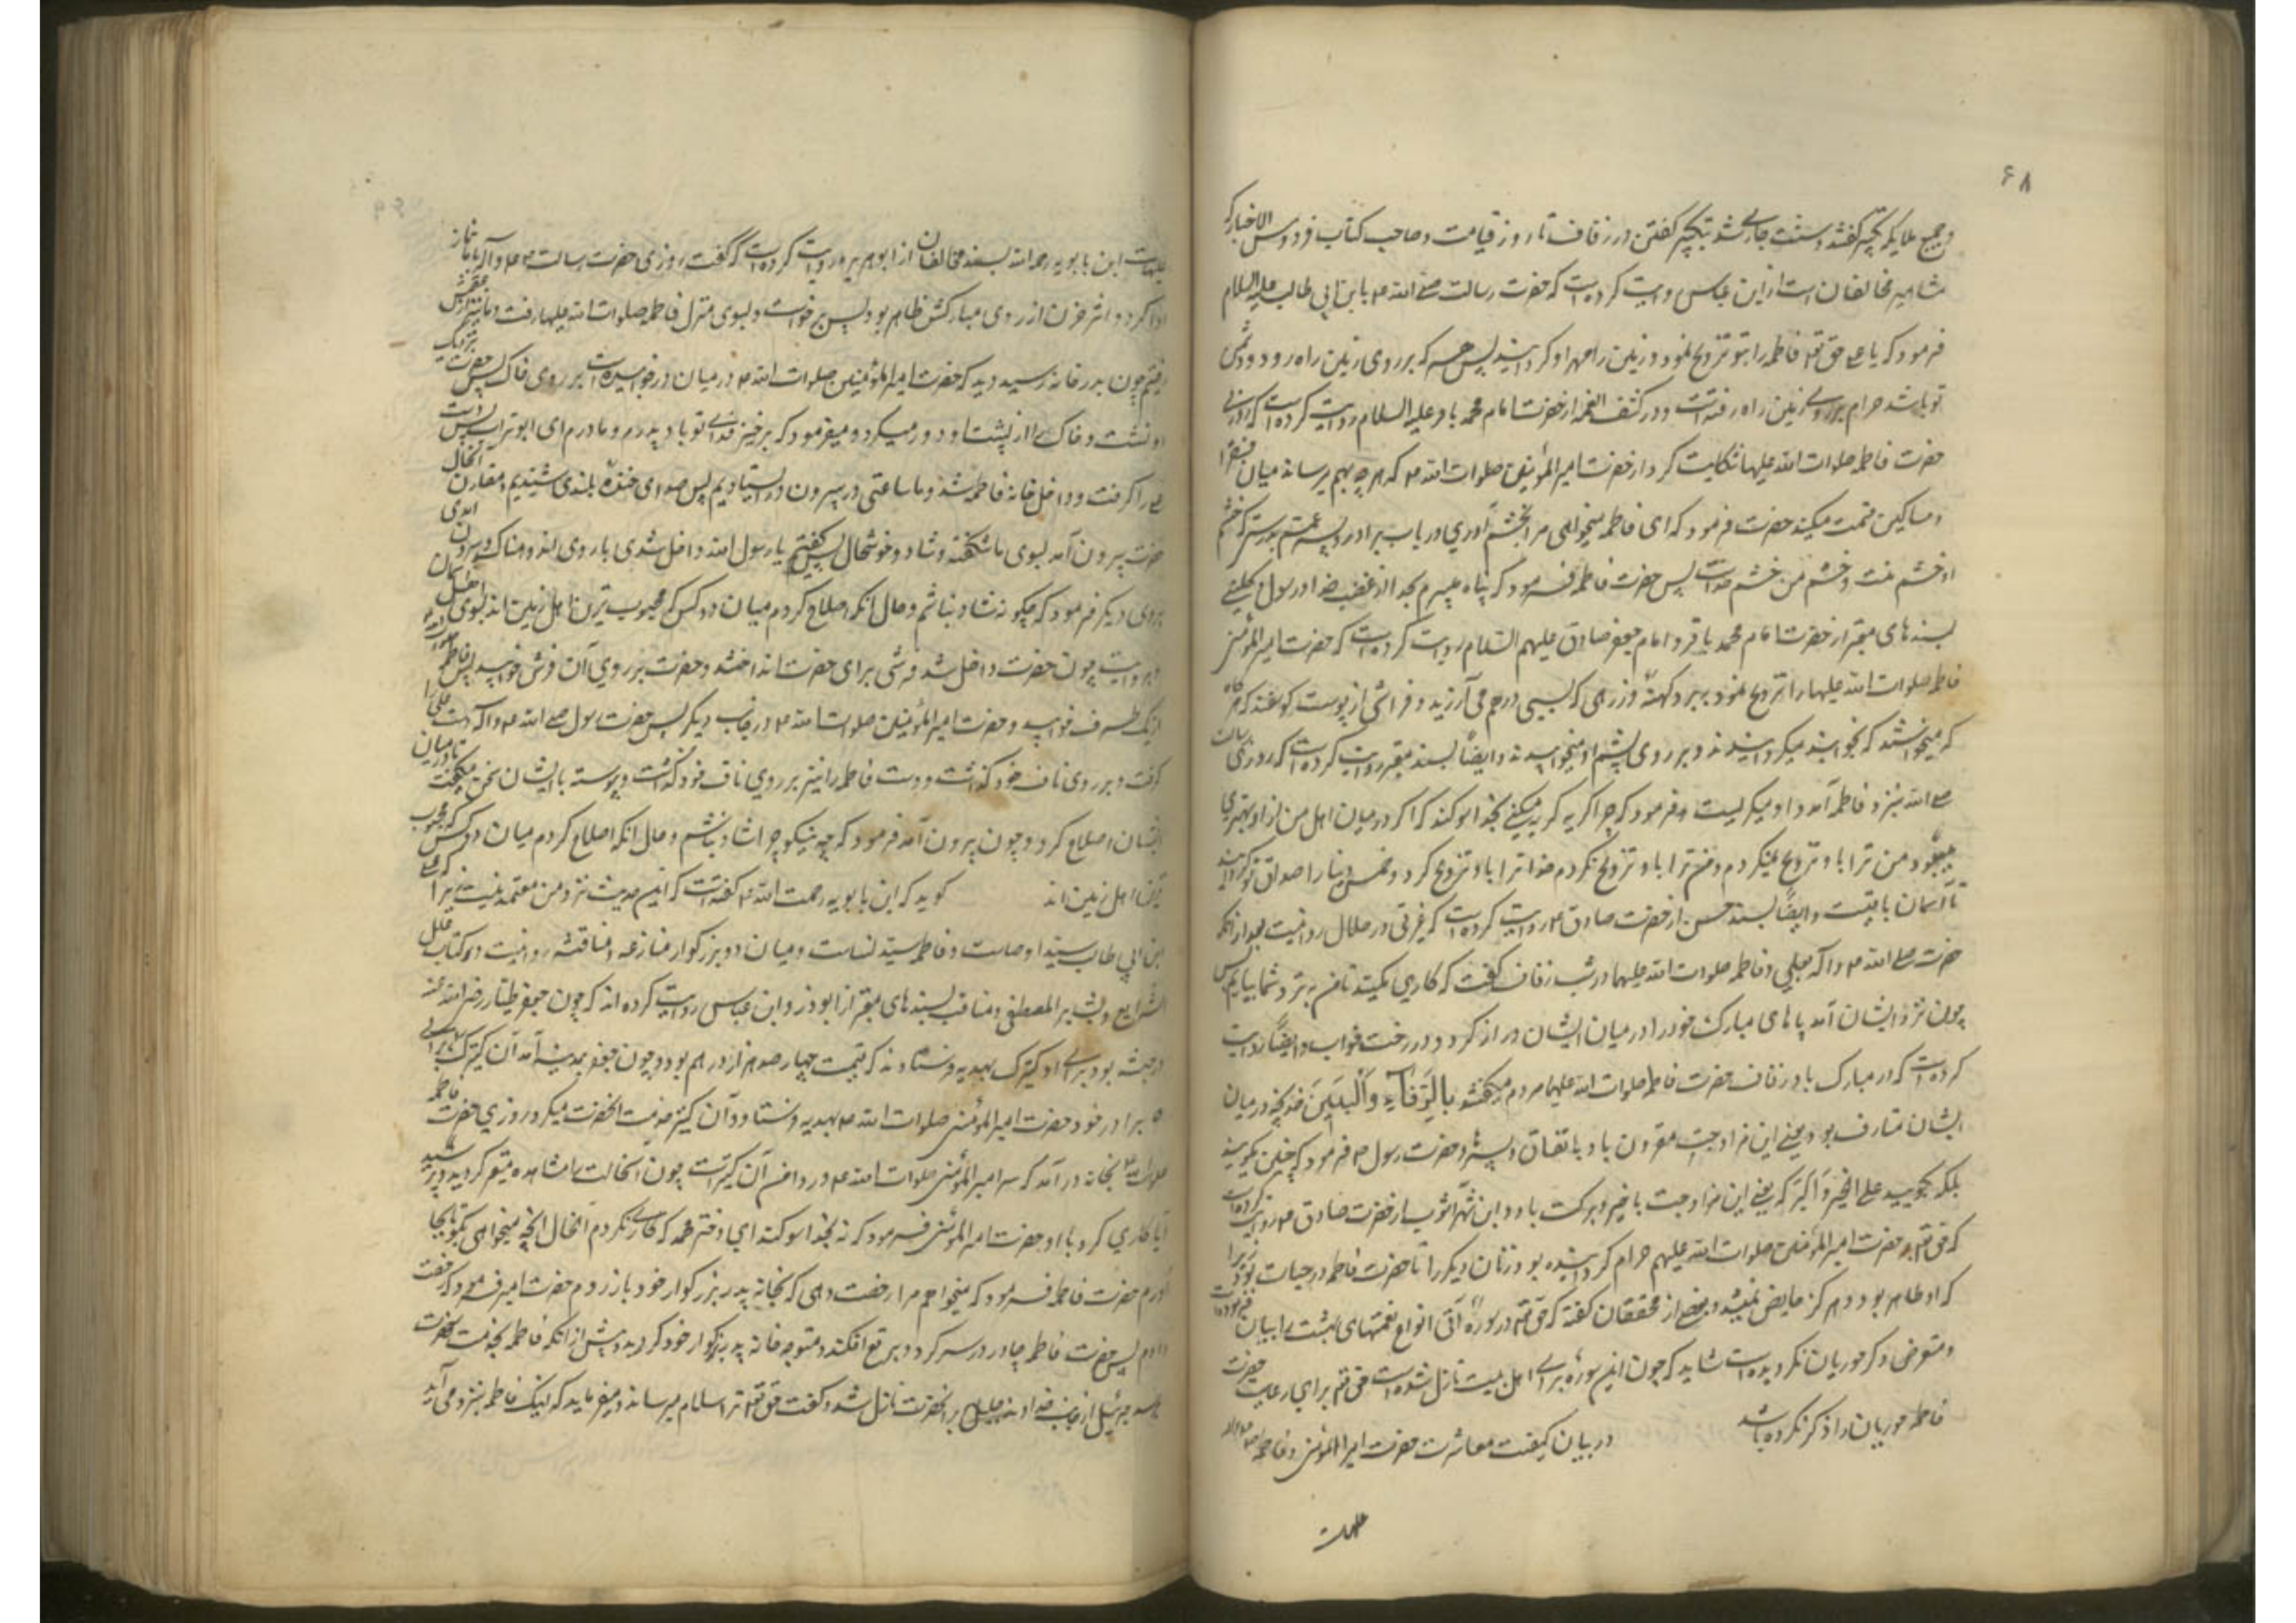 ۶۸
و جمیع ملایکه تکبیر گفتند و سنت جاری شد تکبیر گفتن در زفاف تا روز قیامت و صاحب کتاب فردوس الاخبار که
مشاهیر مخالفان است از ابن عباس روایت کرده است که حضرت رسالت صلی الله ع با بن ابی طالب علیه السلام
فرمود که یا علی حق تع فاطمه را بتو تزویج نمود و زمین را مهر او گردانید پس هر که بر روی زمین راه رود و دشمن
تو باشد حرام بر روی زمین راه رفته است و در کشف الغمه از حضرت امام محمد باقر علیه السلام روایت کرده است که روزی
حضرت فاطمه صلوات الله علیها شکایت کرد از حضرت امیر المؤمنین صلوات الله ع که هر چه بهم میرساند میان فقرا
و مساکین قسمت میکند حضرت فرمود که ای فاطمه میخواهی مرا بخشم آوری در باب برادر و پسر عمم بدرستی که خشم
او خشم منست و خشم من خشم خداست پس حضرت فاطمه فرمود که پناه میبرم بخدا از غضب خدا و رسول کلینی
بسندهای معتبر از حضرت امام محمد باقر و امام جعفر صادق علیهم السلام روایت کرده است که حضرت امیر المؤمنین
فاطمه صلوات الله علیها را تزویج نمود ببرد کهنهٔ و زرهی که بسی درهم می‌ارزید و فراشی از پوست گوسفند که هرگاه
که میخواستند که بخوابند میگردانیدند و بر روی پشم او میخوابیدند و ایضاً بسند معتبر روایت کرده است که روزی رسالت
صلی الله بنزد فاطمه آمد و او میگریست فرمود که چرا گریه میکنی بخدا سوگند که اگر در میان اهل من از او بهتری
میبود من ترا باو تزویج میکردم و من ترا باو تزویج نکردم خدا ترا باو تزویج کرد و خمس دنیا را صداق تو گردانید
تا آسمان باقیست و ایضاً بسند حسن از حضرت صادق ع روایت کرده است که غیرتی در حلال روا نیست بعد از آنکه
حضرت صلی الله ع و آله بعلی و فاطمه صلوات الله علیهما در شب زفاف گفت که کاری مکنید تا من بنزد شما بیایم پس
چون نزد ایشان آمد پاهای مبارک خود را در میان ایشان دراز کرد در رخت خواب و ایضاً روایت
کرده است که در مبارک باد زفاف حضرت فاطمه صلوات الله علیها مردم میگفتند بِالرِّفَآءِ وَالْبَنِينَ چنانچه در میان
ایشان متعارف بود یعنی این مزاوجت مقرون باد باتفاق و پسر و حضرت رسول ص فرمود که چنین مگویید
بلکه بگویید علی الخیر و البرکه یعنی این مزاوجت با خیر و برکت باد و ابن شهرآشوب از حضرت صادق ع روایت کرده است
که حق تع بر حضرت امیر المؤمنین صلوات الله علیهم حرام گردانیده بود زنان دیگر را تا حضرت فاطمه در حیات بود زیرا
که او طاهر بود و هرگز حایض نمیشد و بعضی از محققان گفته که حق تع در سورهٔ هل اتی انواع نعمتهای بهشت را بیان فرموده
و متعرض ذکر حوریان نگردیده است شاید که چون این سوره برای اهل بیت نازل شده است حق تع برای رعایت حضرت
فاطمه حوریان را ذکر نکرده باشد در بیان کیفیت معاشرت حضرت امیر المؤمنین و فاطمه صلوات الله
علیهما است
علیهما است ابن بابویه رحمه الله بسند مخالفان از ابوهریره روایت کرده است که گفت روزی حضرت رسالت ص و آله با ما نماز
ادا کرد و اثر حزن از روی مبارکش ظاهر بود پس برخواست و بسوی منزل فاطمه صلوات الله علیها رفت و ما نیز عقبش
رفتیم چون بدر خانه رسید دید که حضرت امیر المؤمنین صلوات الله ع در میان در خوابیده است بر روی خاک پس حضرت نزدیک
او نشست و خاک را از پشت او دور میکرد و میفرمود که برخیز فدای تو باد پدرم و مادرم ای ابو تراب پس دست
علی را گرفت و داخل خانه فاطمه شد و ما ساعتی در بیرون در ایستادیم پس صدای خندهٔ بلندی شنیدیم و مقارن آنحال
حضرت بیرون آمد بسوی ما شکفته و شاد و خوشحال پس گفتیم یا رسول الله داخل شدی با روی اندوهناک و بیرون آمدی
بروی دیگر فرمود که چگونه شاد نباشم و حال آنکه اصلاح کردم میان دو کس که محبوب ترین اهل زمین اند بسوی اهل آسمان
و بروایت چون حضرت داخل شد فرشی برای حضرت انداختند و حضرت بر روی آن فرش خوابید پس فاطمه
از یک طرف خوابید و حضرت امیر المؤمنین صلوات الله ع در جانب دیگر پس حضرت رسول صلی الله ع و آله دست علی را
گرفت و بر روی ناف خود گذاشت و دست فاطمه را نیز بر روی ناف خود گذاشت و پیوسته با ایشان سخن میگفت تا در میان
ایشان اصلاح کرد و چون بیرون آمد فرمود که چه نیکو چرا شاد نباشم و حال آنکه اصلاح کردم میان دو کس که محبوب
ترین اهل زمین اند گوید که ابن بابویه رحمت الله ع گفته است که این حدیث نزد من معتمد نیست زیرا که علی
بن ابی طالب سید اوصیاست و فاطمه سید نساست و میان دو بزرگوار منازعه و مناقشه روا نیست در کتاب علل
الشرایع و بشایر المصطفی و مناقب بسندهای معتبر از ابوذر و ابن عباس روایت کرده اند که چون جعفر طیار رضی الله عنه
در حبشه بود برای او کنیزک بهدیه فرستادند که قیمت چهار صد هزار درهم بود و چون جعفر بمدینه آمد آن کنیزک را برای
برادر خود حضرت امیر المؤمنین صلوات الله ع بهدیه فرستاد و آن کنیز خدمت آنحضرت میکرد روزی حضرت فاطمه
صلوات الله ع بخانه در آمد که سر امیر المؤمنین صلوات الله ع در دامن آن کنیز است چون آنحالت را مشاهده متغیر گردید و پرسید
آیا کاری کرد با او حضرت امیر المؤمنین فرمود که نه بخدا سوگند ای دختر محمد که کاری نکردم الحال آنچه میخواهی بگو تا بجا
آورم حضرت فاطمه فرمود که میخواهم مرا رخصت دهی که بخانه پدر بزرگوار خود باز روم حضرت امیر فرمود که رخصت
دادم پس حضرت فاطمه چادر در سر کرد و برقع افکند و متوجه خانه پدر بزرگوار خود گردید و پیش از آنکه فاطمه بخدمت حضرت
رسد جبرئیل از جانب خداوند جلیل بر آنحضرت نازل شد و گفت حق تع ترا سلام میرساند و میفرماید که اینک فاطمه بنزد می آید